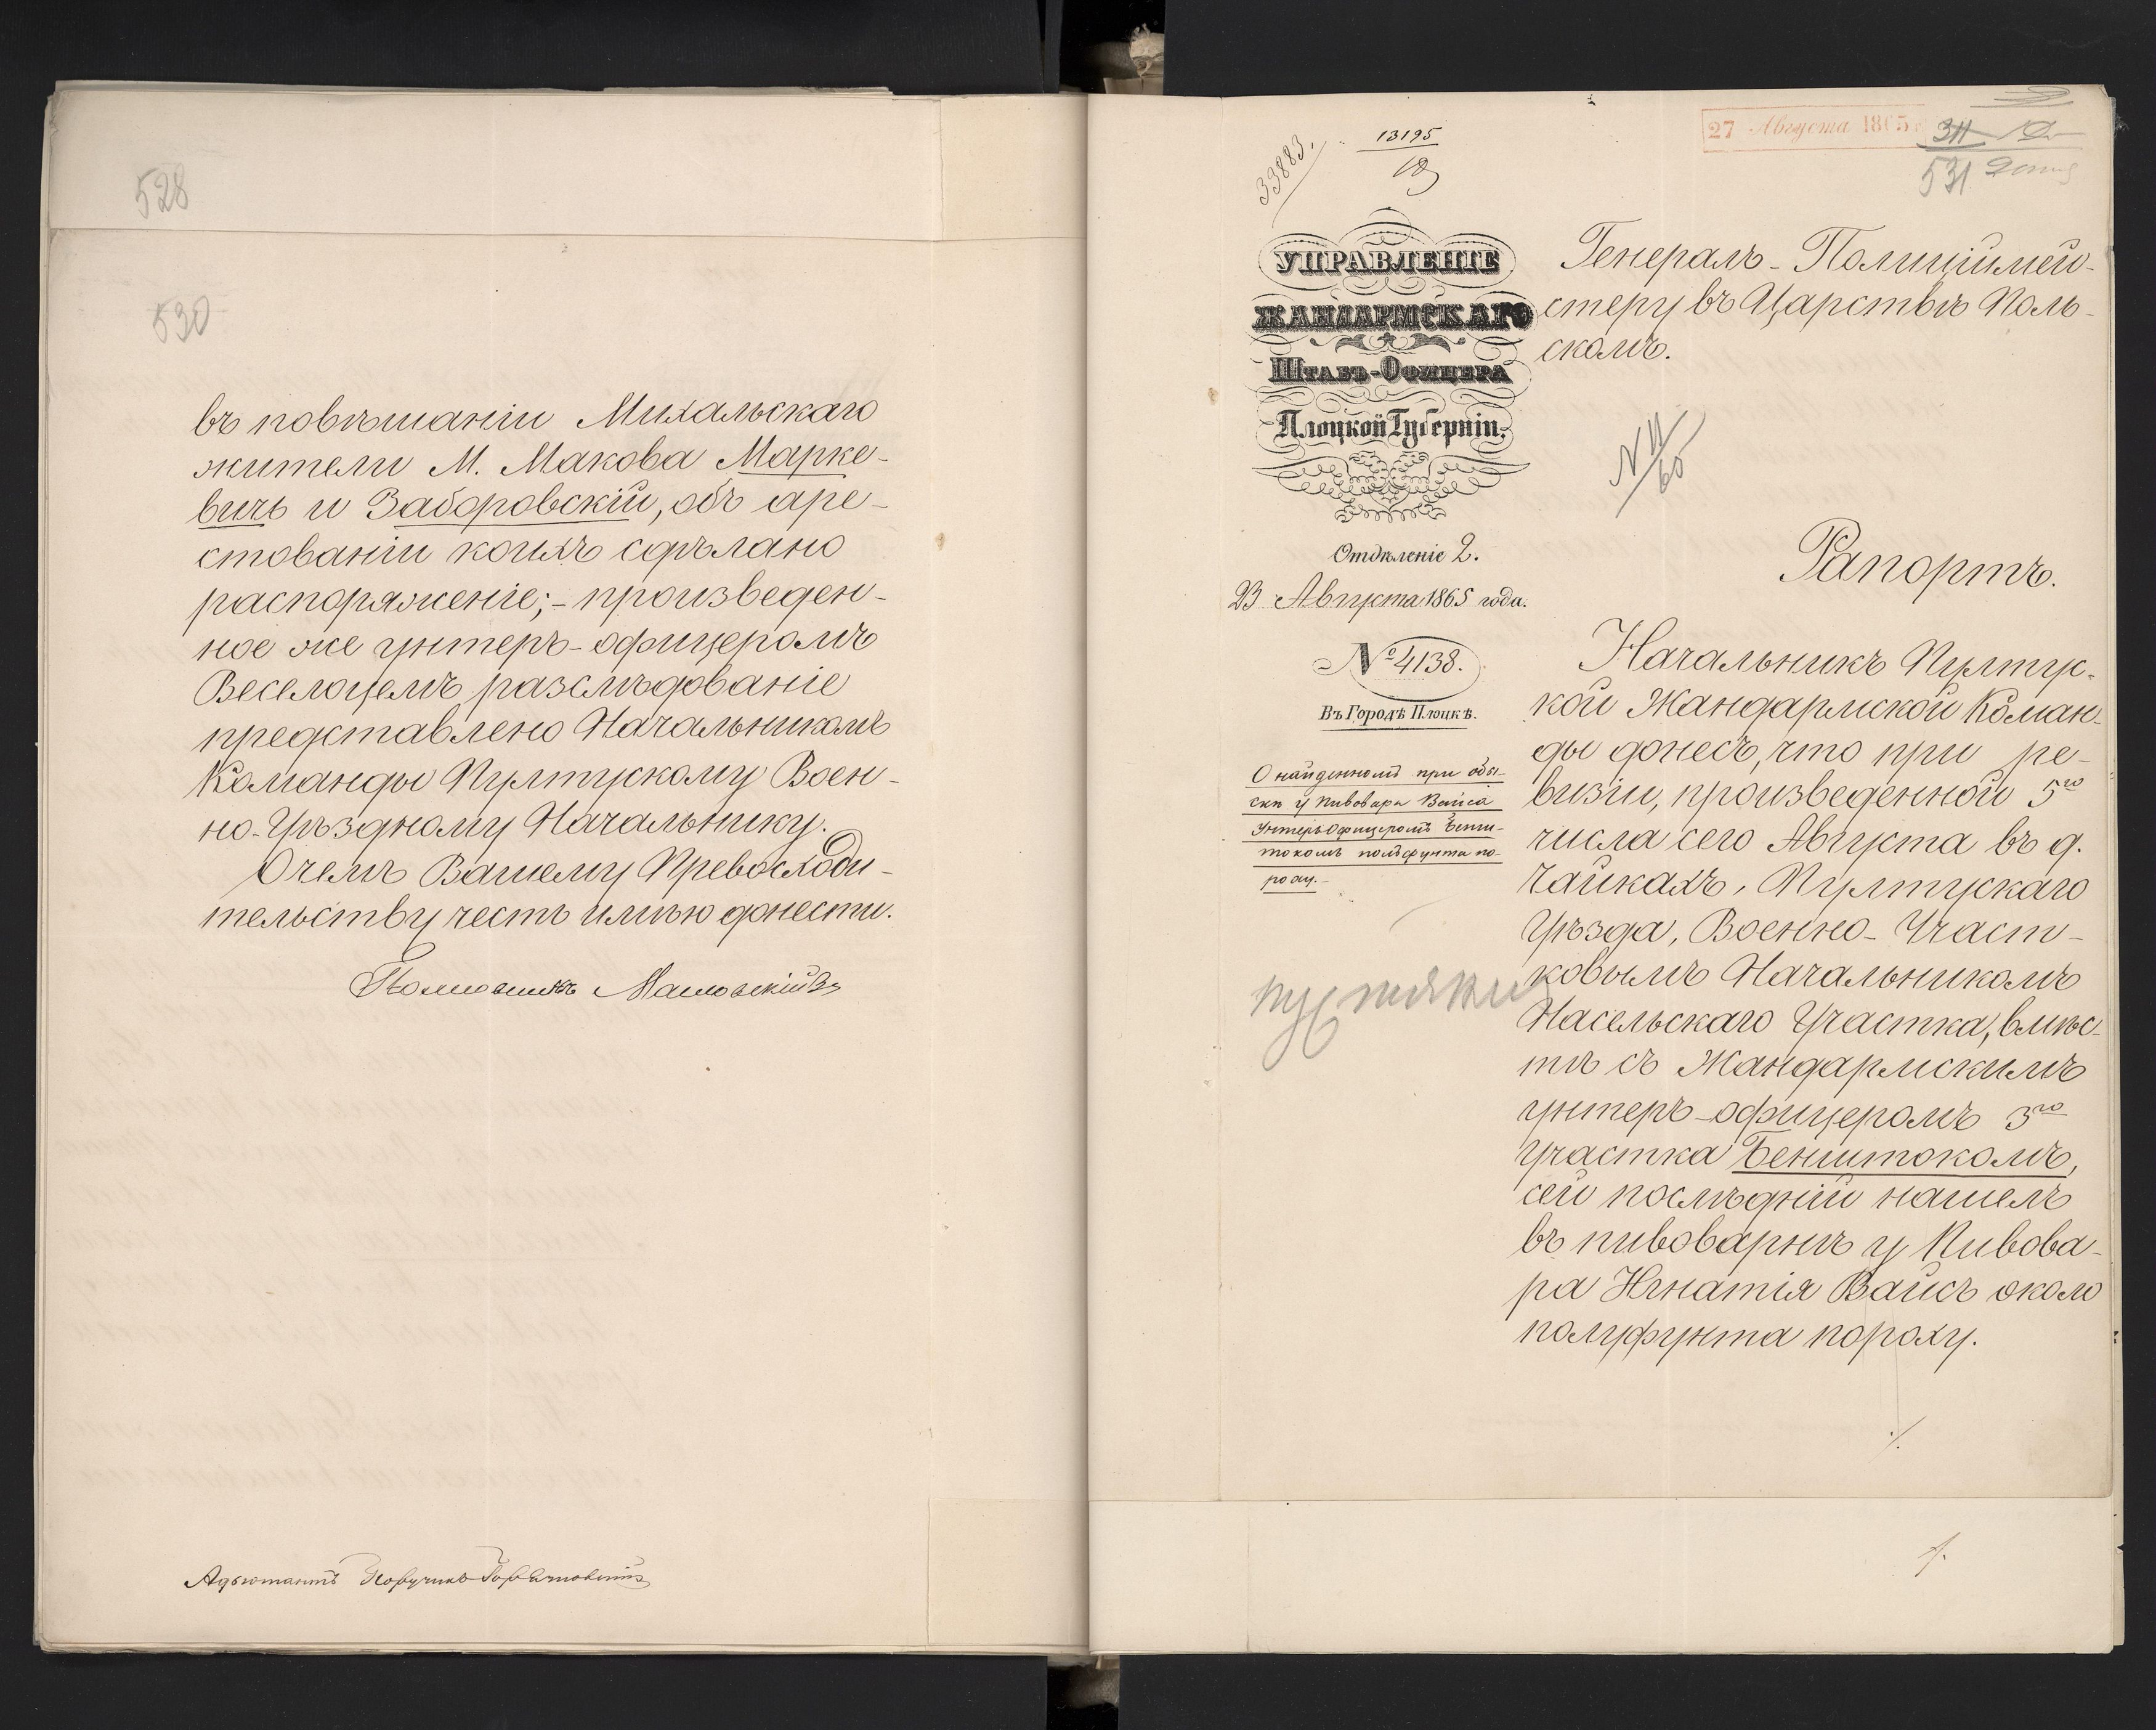 528
530
въ повѣшаніи Михальскаго
жители М. Макова Марке-
вичь и Заборовскій, объ аре-
стованіи коихъ сдѣлано
распоряженіе; - произведен-
ное же унтеръ-офицеромъ
Веселоцемъ разслѣдованіе
представлено Начальникомъ
Команды Пултускому Воен-
но-Уѣздному Начальнику.
О чемъ Вашему Превосходи-
тельству честь имѣю донести.
Полковникъ
Адъютантъ Поручикъ
27 Августа 1865
311
531
33883.
13195
УПРАВЛЕНІЕ
ЖАНДАРМСКАГО
Штабъ-Офицера
Плоцкой Губерніи.
Отдѣленіе 2.
23 Августа 1865 года.
№ 4138.
Въ Городѣ Плоцкѣ.
О найденномъ при обы-
скѣ у пивовара Вайса
Унтеръ Офицеромъ Бенш-
токомъ полъфунта по-
роху.-
пустяжи
Генералъ-Полиціймей-
стеру въ Царствѣ Поль-
скомъ.
N 11/65
Рапортъ.
Начальникъ Пултус-
кой Жандармской Коман-
ды донесъ, что при ре-
визіи, произведенной 5го
числа сего Августа въ д.
Чайкахъ, Пултускаго
Уѣзда, Военно-Участ-
ковымъ Начальникомъ
Насельскаго Участка, вмѣс-
тѣ съ Жандармскимъ
унтеръ-офицеромъ 3го
участка Бенштокомъ,
сей послѣдній нашелъ
въ пивоварнѣ у Пивова-
ра Игнатія Вайсъ около
полуфунта пороху.